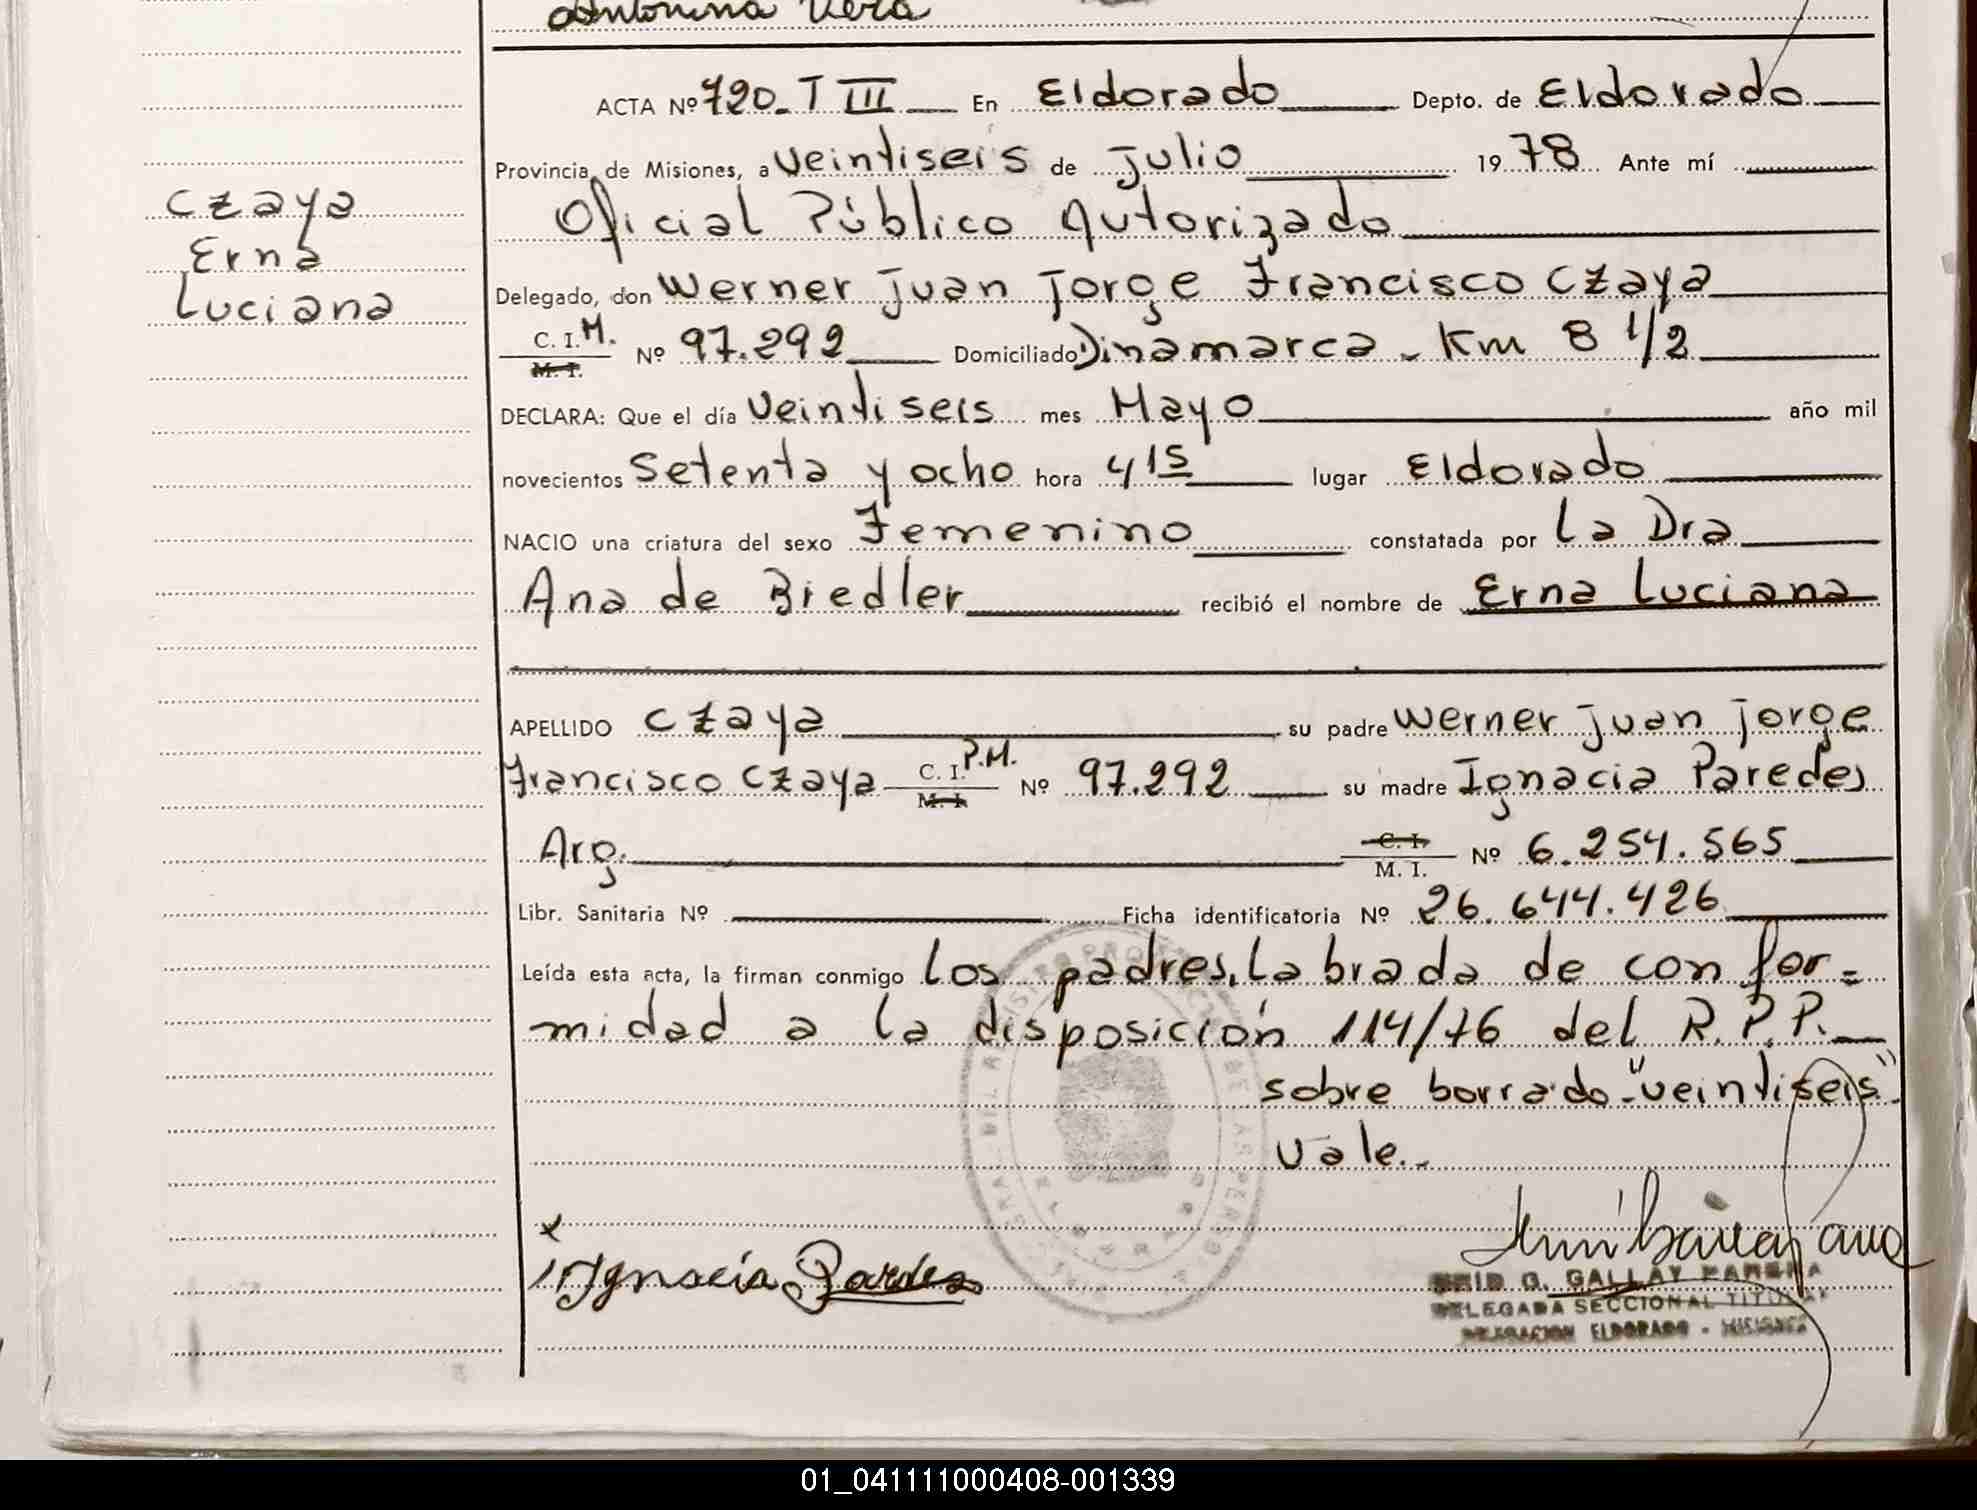 Antonina Vera
ACTA Nº 720. T III En Eldorado Depto. de Eldorado
Provincia de Misiones, a veintiseis de julio 1978 Ante mí
Oficial Público Autorizado
Delegado, don Werner Juan Jorge Francisco Czaya
C. I. M. Nº 97.292 Domiciliado Dinamarca - Km 8 1/2
M. I.
DECLARA: Que el día veintiseis mes Mayo año mil
novecientos setenta y ocho hora 4 15 lugar Eldorado
NACIO una criatura del sexo Femenino constatada por la Dra
Ana de Biedler recibió el nombre de Erna Luciana
APELLIDO Czaya su padre Werner Juan Jorge
Francisco Czaya C. I. P.M. Nº 97.292 su madre Ignacia Paredes
M. I.
Arg. C. I. Nº 6.254.565
M. I.
Libr. Sanitaria Nº Ficha identificatoria Nº 26.644.426
Leída esta acta, la firman conmigo los padres, labrada de confor=
midad a la disposición 114/76 del R.P.P.
sobre borrado "veintiseis"
vale.
x
Ignacia Paredes
G. GALLAY
DELEGADA SECCIONAL TITULAR
DELEGACION ELDORADO - MISIONES
Czaya
Erna
Luciana
01_041111000408-001339